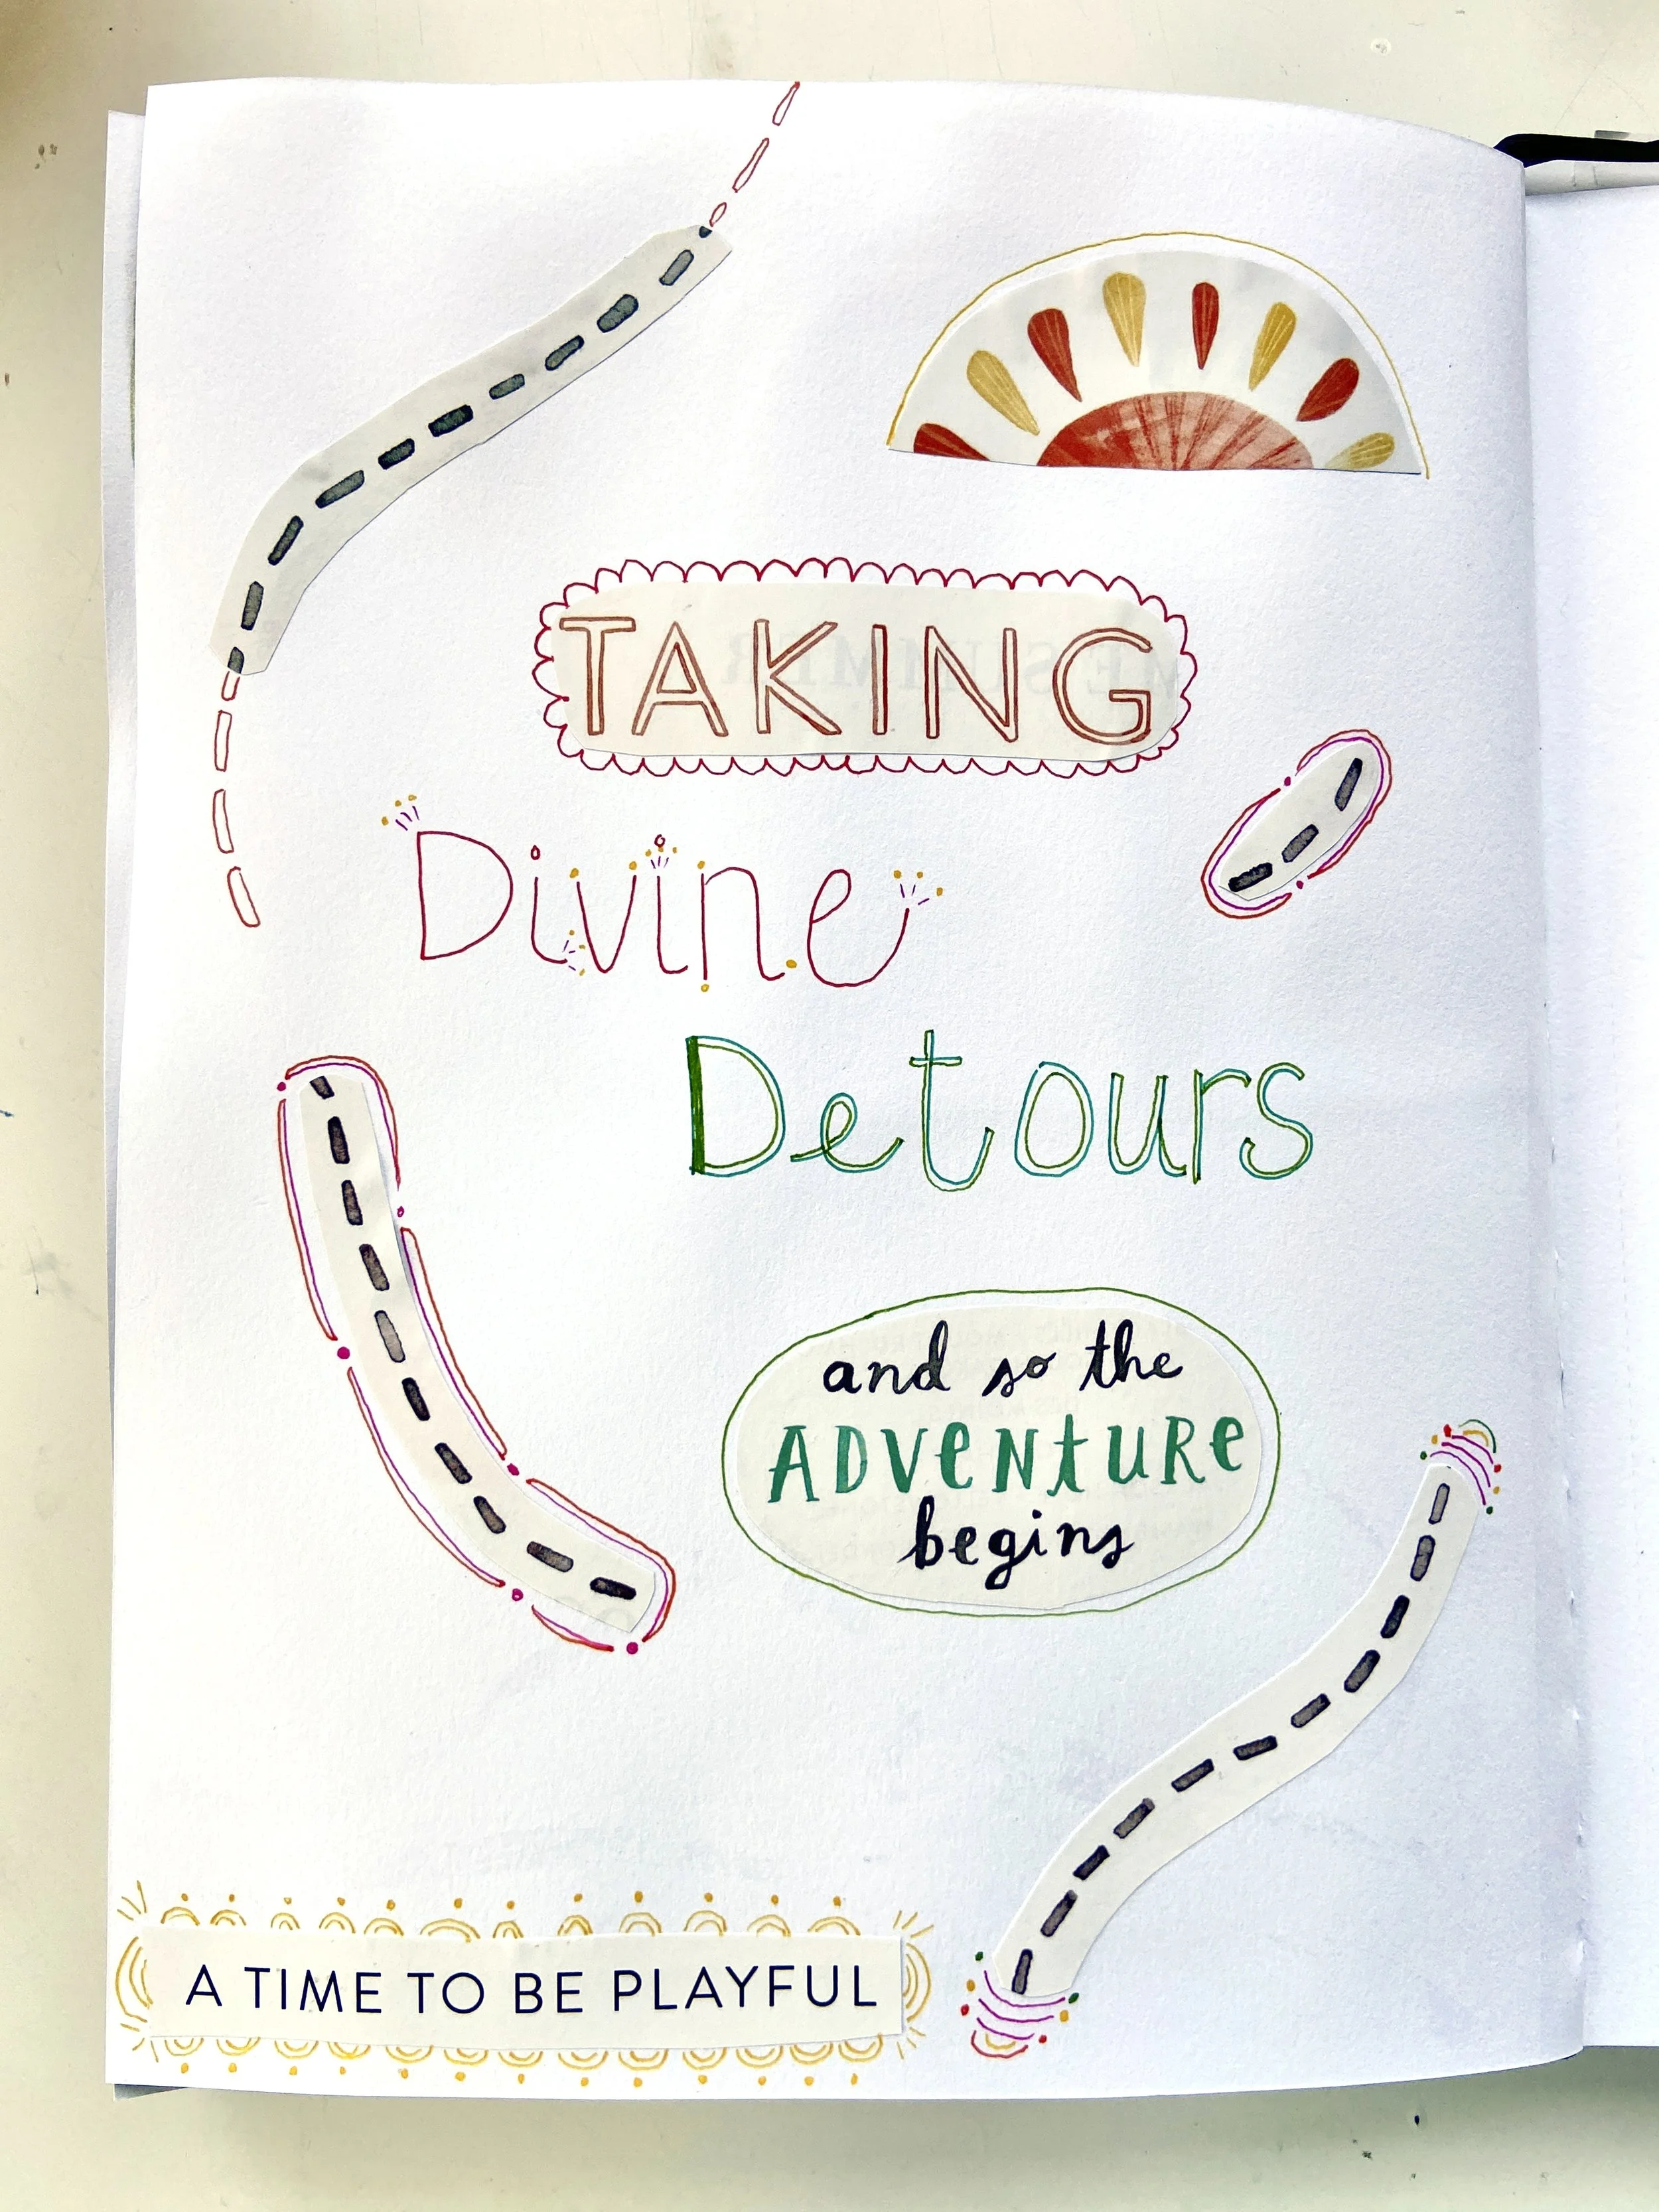 TAKING
Divine
Detours
and so the
ADVENTURE
begins
A TIME TO BE PLAYFUL